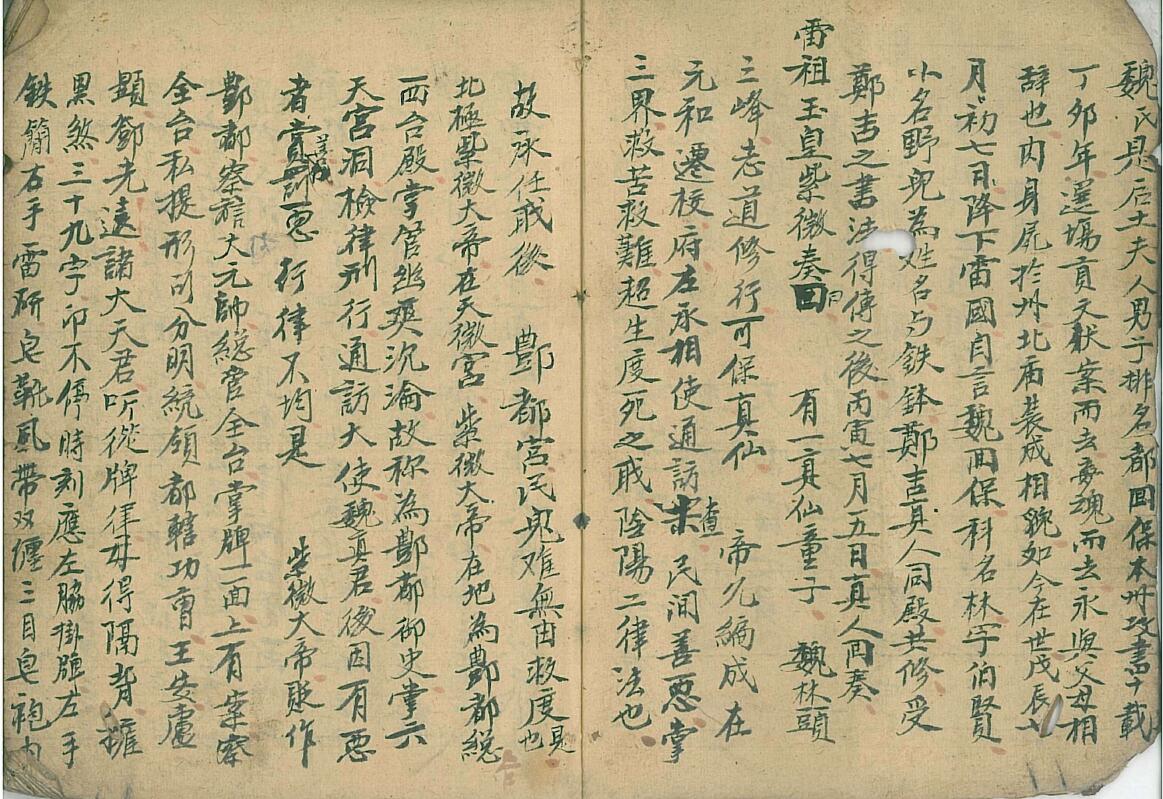 魏氏是后土夫人男子排名都囬保本州攻書四十載
丁夘年選場貢文献案而去毒魂而去永與父母相
辞也肉身屍扵州北庙裝成相貌如今在世戊辰
月初七日降下雷國自言魏囬保科名林字伯賢
小名野兒為姓名与鉄鉢鄭吉真人同殿共修受
鄭吉之書法得傳之後丙寅七月五日真人囘奏
雷祖玉皇紫微奏曰 有一真仙童子 魏林頭
三峰志道修行可保真仙 帝允編成在
元和遷校府左丞相使通訪查民间善恶掌
三界救苦救難超生度死之戝陰陽二律法也
故承任戝後 酆都宮民鬼难無由救度也是
北極紫微大帝在天微宮紫微大帝在地為酆都総
西台殿掌管幽爽沉淪故称為酆都御史掌六
天宮洞檢律刑行通訪大使魏真君後因有恶
者賞善罰恶行律不均是 紫微大帝貶作
酆都察訪大元帥総管全台掌牌一面上有案察
全台私提形司分明統領都轄功曹王安盧
顕鄧光遠諸大天君听從牌律毋得隔背
黒煞三十九字印不停時刻應左脇掛腿左手
鉄簡右手雷研皂靴風帶双纒三目皂袍